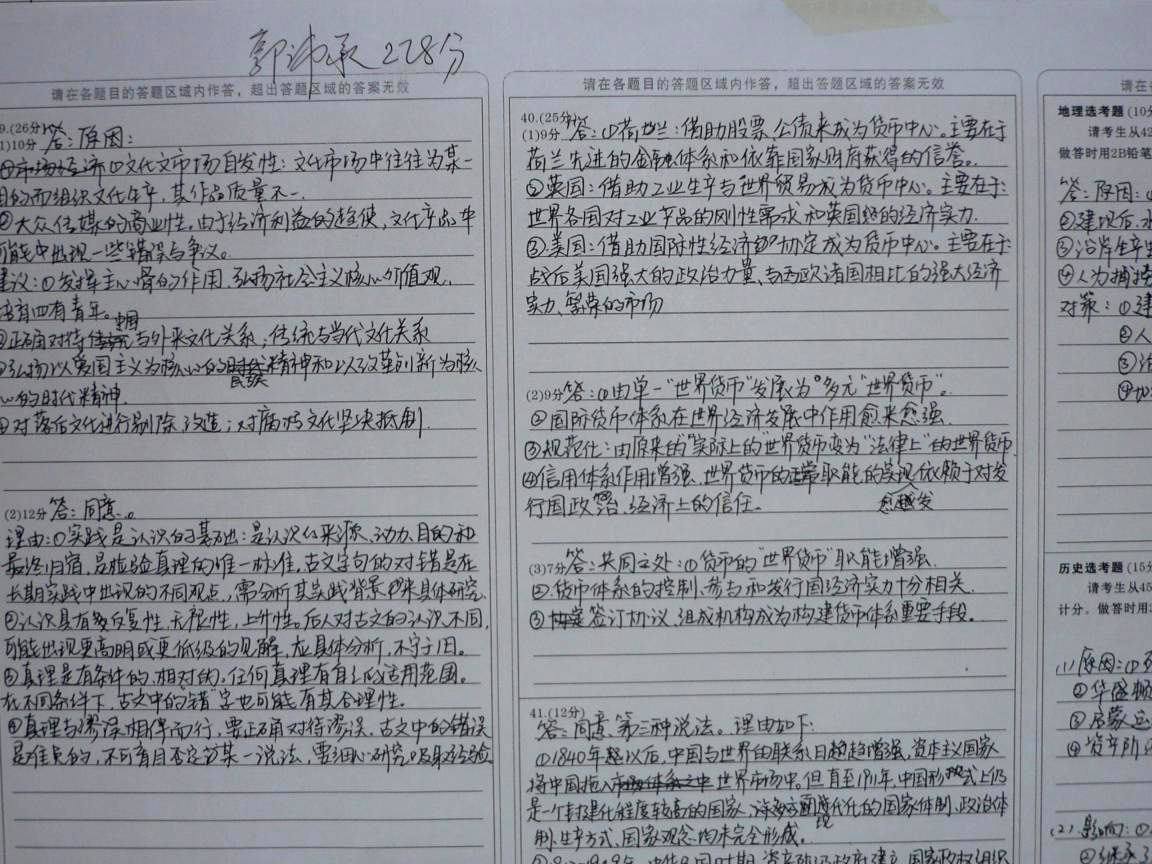 郭沛承 228分
请在各题目的答题区域内作答，超出答题区域的答案无效
9.(26分)
1)10分 答：原因：
市场经济 ①文化文市场自发性：文化市场中往往为某一
目的而组织文化生产，其作品质量不一.
②大众传媒的商业性。由于经济利益的趋使，文化产品中
可能中出现一些错误与争议。
建议：①发挥主心骨的作用.弘扬社会主义核心价值观,
培育四有青年。
②正确对待中国与外来文化关系，传统与当代文化关系
③弘扬以爱国主义为核心的民族精神和以改革创新为核
心的时代精神.
④对落后文化进行剔除、改造；对腐朽文化坚决抵制.
(2)12分 答：同意。
理由：①实践是认识的基础：是认识的来源、动力、目的和
最终归宿，是检验真理的唯一标准，古文字句的对错是在
长期实践中出现的不同观点，需分析其实践背景来具体研究.
②认识具有反复性，无限性，上升性。后人对古文的认识不同，
可能出现更高明或更低级的见解，应具体分析，不守于旧。
③真理是有条件的、相对的，任何真理有自己的适用范围。
在不同条件下，古文中的“错”字也可能有其合理性.
④真理与谬误相伴而行，要正确对待谬误，古文中的错误
是难免的，不可盲目否定某一说法，要细心研究吸取经验
请在各题目的答题区域内作答，超出答题区域的答案无效
40.(25分)
(1)9分 答：①荷兰：借助股票、公债来成为货币中心。主要在于
荷兰先进的金融体系和依靠国家财府获得的信誉。
②英国：借助工业生产与世界贸易成为货币中心。主要在于:
世界各国对工业产品的刚性需求和英国的经济实力.
③美国：借助国际性经济协定成为货币中心。主要在于:
战后美国强大的政治力量、与西欧诸国相比的强大经济
实力、繁荣的市场
(2)9分 答：①由单一“世界货币”发展为“多元”世界货币”。
②国际货币体系在世界经济发展中作用愈来愈强.
③规范化：由原来的“实际上的”世界货币变为“法律上”的世界货币
④信用体系作用增强.世界货币的职能的实现愈越发依赖于对发
行国政治、经济上的信任。
(3)7分 答：共同之处：①货币的“世界货币”职能增强.
②货币体系的控制、参与和发行国经济实力十分相关.
③签订协议、组成机构成为构建货币体系重要手段。
41.(12分)
答：同意第三种说法。理由如下：
①1840年以后，中国与世界的联系日趋增强，资本主义国家
将中国拖入世界市场中。但直至1911年，中国形式上仍
是一个封建化程度较高的国家、现代化的国家体制、政治体
制、生产方式、国家观念均未完全形成。
请在各
地理选考题 (10分
请考生从42
做答时用2B铅笔
答：原因：①
②建坝后，水
③沿岸生产生
④人为捕捞
对策：①建
②人
③治
④加
历史选考题 (15分
请考生从45
计分。做答时用2
(1)原因：①
②华盛顿
③启蒙运
④资产阶
(2)影响：①
②继承了